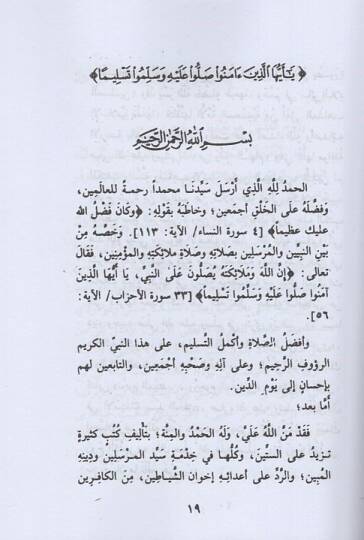 ﴿ يَـٰٓأَيُّهَا ٱلَّذِينَ ءَامَنُوا۟ صَلُّوا۟ عَلَيْهِ وَسَلِّمُوا۟ تَسْلِيمًا ﴾
بِسْمِ اللهِ الرَّحْمٰنِ الرَّحِيْمِ
الحمدُ لِلَّهِ الَّذِي أَرْسَلَ سَيِّدَنا محمداً رحمةً للعالَمِين،
وَفضَّلَهُ عَلَى الخَلْقِ أجمَعين؛ وخاطبَهُ بقَولِهِ: ﴿وكَانَ فَضْلُ الله
عليك عظيماً﴾ [٤ سورة النساء/ الآية: ١١٣]. وَخَصَّهُ مِنْ
بَيْنِ النَّبِيِّين والمُرْسَلِين بصَلاتِهِ وصَلاةِ ملائكتِهِ والمؤمِنِين، فَقَالَ
تعالى: ﴿إنَّ اللَّهَ وَمَلاَئِكَتَهُ يُصَلُّونَ عَلَى النَّبِيِّ، يَا أَيُّهَا الَّذِينَ
آمَنُوا صَلُّوا عَلَيْهِ وَسَلِّمُوا تَسْلِيماً﴾ [٣٣ سورة الأحزاب/ الآية:
٥٦].
وأفضَلُ الصَّلاةِ وأكْمَلُ التَّسليم، على هذا النبيِّ الكريم
الرؤوفِ الرَّحِيم؛ وعلى آلِهِ وصَحْبِهِ أجْمَعِين، والتابعين لهم
بإحسانٍ إلى يَوْمِ الدِّين.
أمَّا بعد؛
فَقَدْ مَنَّ اللَّهُ عَلَيَّ، وَلَهُ الحَمْدُ والمِنَّة؛ بتَأليفِ كُتُبٍ كثيرةٍ
تزيدُ على الستِّين، وكُلُّها في خِدْمَةِ سَيِّدِ المرسَلِين ودِينِهِ
المُبِين؛ والرَّدِّ على أعدائِهِ إخوانِ الشَّياطِين، مِنَ الكافِرِين
١٩